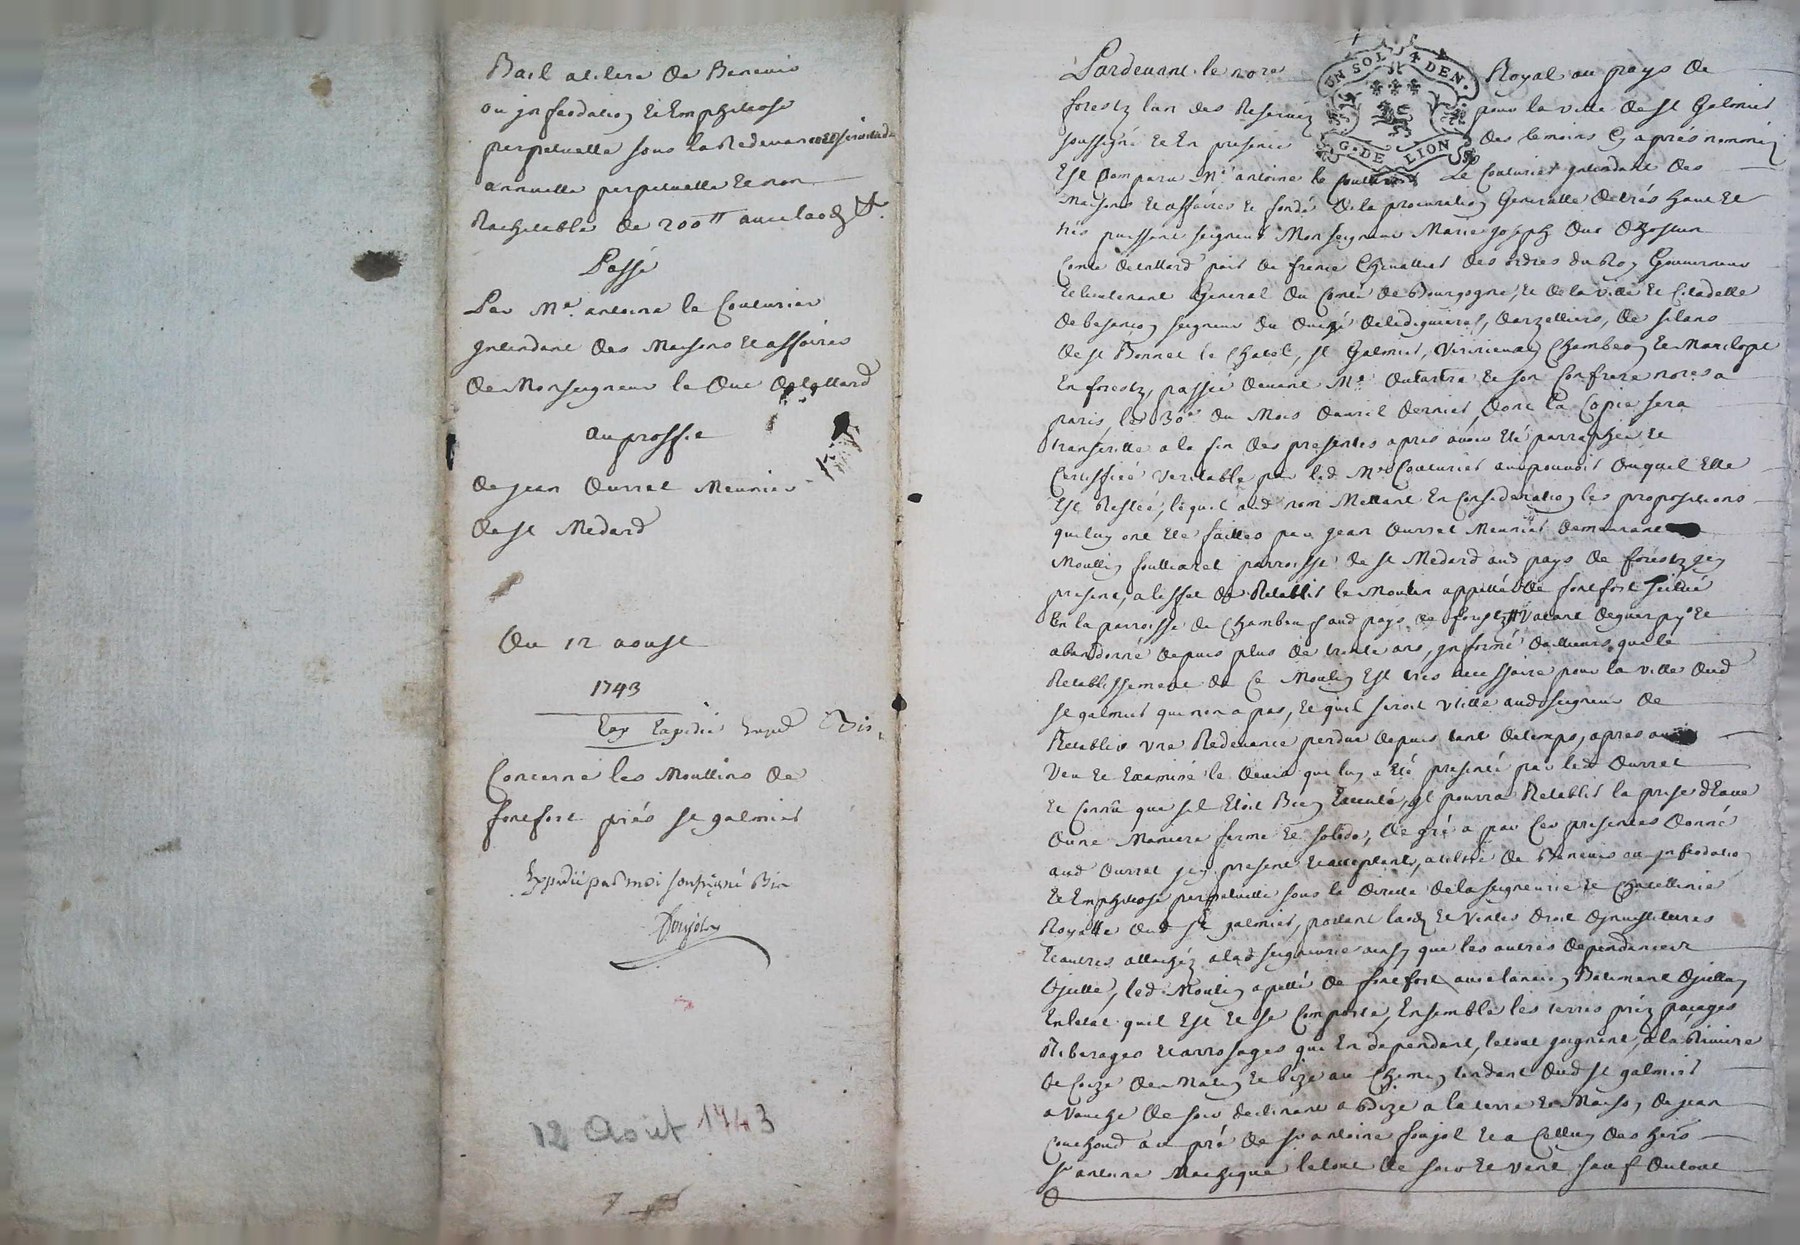 Bail atiltre de Benevis
ou jnfeodation et Emphiteose
perpetuelle sous la Redevance et servis
annuelle perpetuelle et non
Rachetable de 200tt avec laods
Passé
Par Me. antoine le Couturier
jntendant des Maisons et affaires
de Monseigneur le Duc de tallard
au proffit
de jean Durret Meunier
de st Medard
Du 12 aoust
1743
Concerne les Moullins de
fontfort prés st galmier
Expedié par moi soussigné
12 Août 1743
Pardevant le nore Royal au pays de
forestz lun des Reservéz pour la ville de st Galmier
soussigné et En presence des temoins Cy aprés nomméz
UN SOL 4 DEN.
G. DE LION
Est Comparu Me. antoine le Couturier jntendant des
Maisons et affaires et fondé de la procuration Generalle de trés haut et
trés puissant seigneur Monseigneur Marie joseph Duc Dhostun
Comte de tallard pair de france Chevallier des ordres du Roy Gouverneur
et lieutenant General du Comté de Bourgogne, et de la ville et Citadelle
de besançon seigneur du Duché de lediguieres, Darzelliers, de silans
de st Bonnet le Chatel, st Galmier, Virivieux, Chambeon et Marclopt
En forestz, passée devant Me. Dutartre et son Confrere nores a
paris, le 30e du Mois davril dernier, dont la Copie sera
transcritte a la fin des presentes apres avoir eté parraphée et
Certiffiée veritable par led Me Couturier au pouvoir duquel Elle
Est Restée, lequel aud nom Mettant En Consideration les propositions
qui luy ont eté faittes par jean Durret Meunier demeurant
Moullin soulliaret parroisse de st Medard aud pays de forestz jcy
present, a leffet de Retablir le Moulin appellé de fontfort scitué
En la parroisse de Chambeuf aud pays de forestz Vacant deguerpy et
abandonné depuis plus de trente ans, jnformé dailleurs que le
Retablissement de Ce Moulin Est tres necessaire pour la ville dud
st galmier qui n'en a pas, et quil seroit utille aud seigneur de
Retablir une Redevance perdue depuis tant de temps, apres avoir
Veu et Examiné le devis qui luy a eté presenté par led Durret
et Connû que sil Etoit Bien Executé, jl pourra Retablir la prise dEaue
Dune Maniere ferme et solide, De gré a par Ces presentes donné
aud Durret jcy present et acceptant, a tiltre de Benevis ou jnfeodation
et Emphiteose perpetuelle sous la directe de la seigneurie et Chatellenie
Royalle dud st galmier, portant laods et Ventes droit djnvestitures
et autres attachéz a lad seigneurie ainsy que les autres dependances
djcelle, led Moulin apellé de fontfort avec lancien Batiment djcelluy
En letat quil Est et se Comporte, Ensemble les terres préz pacages
Riberages et arrosages qui En dependent, le tout joignant, a la Riviere
de Coize de Matin et bize au Chemin tendant dud st galmier
a Vauche de soir declinant a Bize a la terre et Maison de jean
Couchoud au pré de sr antoine foujol et a Celluy des hers
sr antoine Machique le tout de soir et vent sauf du tout